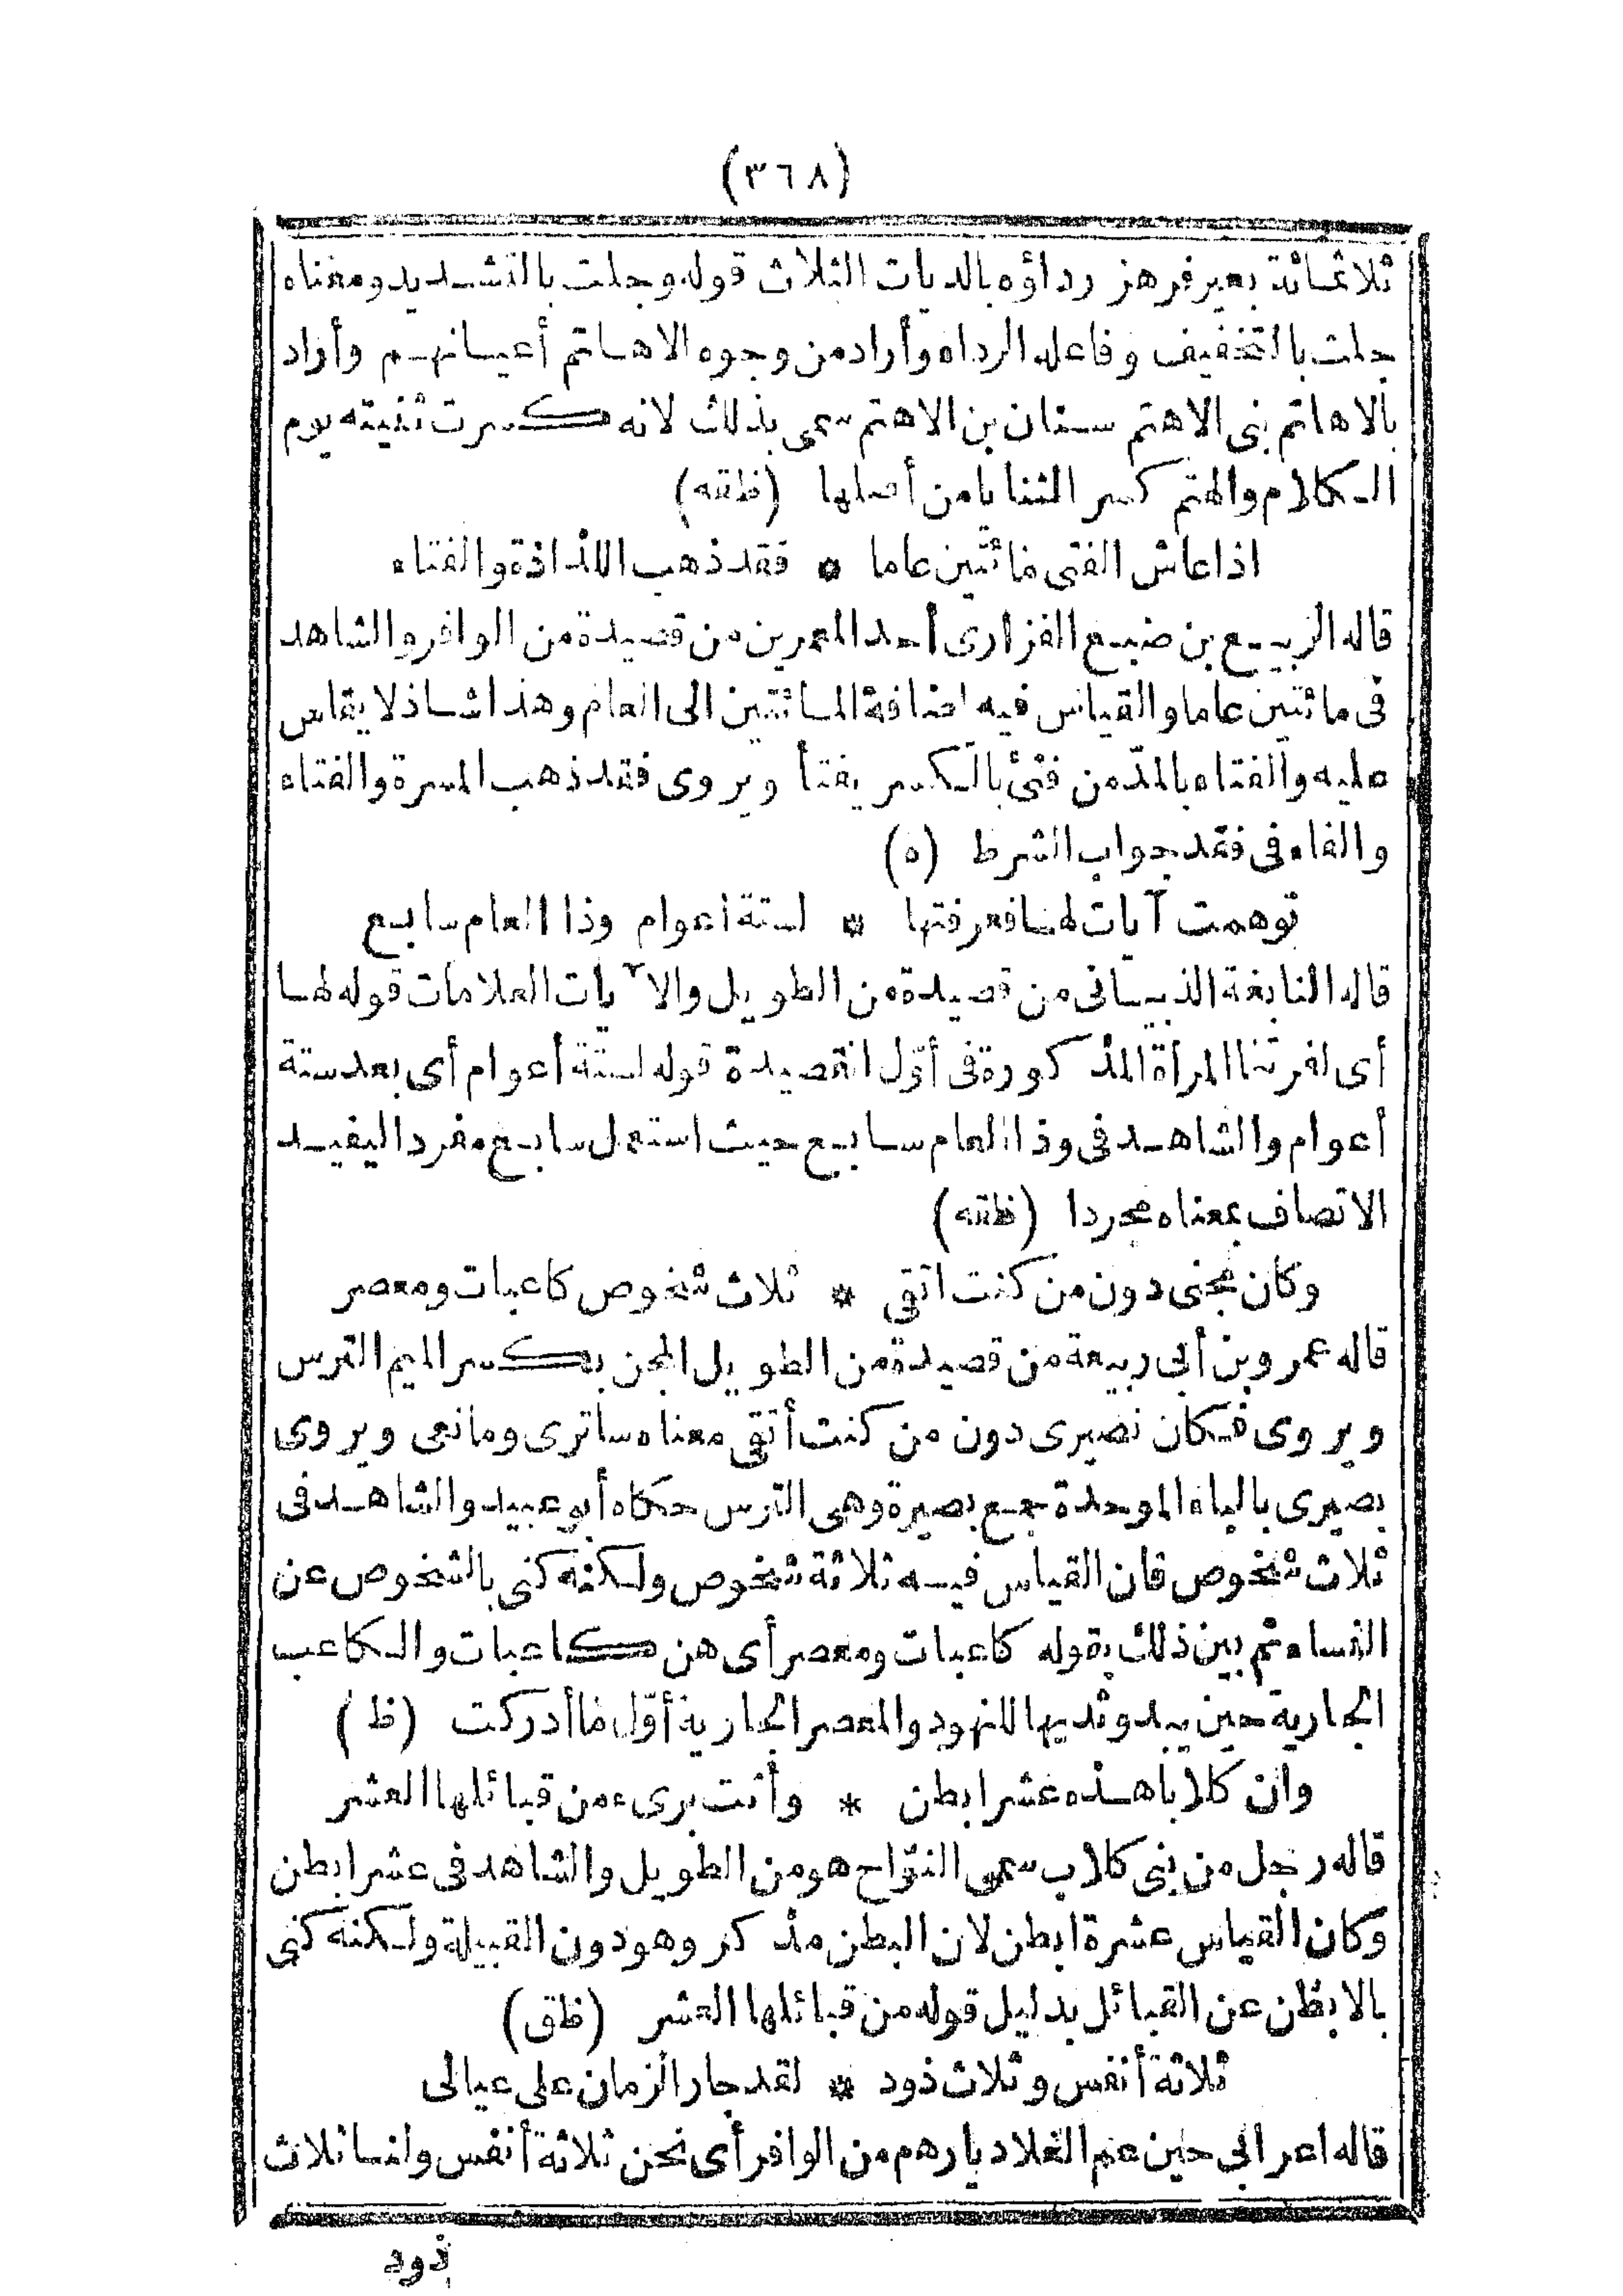 (٣٦٨)
ثلاثمائة بعير فرهن رداؤه بالديات الثلاث قوله وجلت بالتشديد ومعناه
جلت بالتخفيف وفاعله الرداء وأراد من وجوه الاهاتم أعيانهم وأراد
بالاهاتم بنى الاهتم سنان بن الاهتم سمى بذلك لانه كسرت ثنيته يوم
الكلام والهتم كسر الثنايا من أصلها (ظقه)
اذا عاش الفتى مائتين عاما * فقد ذهب اللذاذة والفتاء
قاله الربيع بن ضبع الفزارى أحد المعمرين من قصيدة من الوافر والشاهد
فى مائتين عاما والقياس فيه اضافة المائتين الى العام وهذا شاذ لا يقاس
عليه والفتاء بالمدّ من فتئ بالكسر يفتأ ويروى فقد ذهب المسرة والفتاء
والفاء فى فقد جواب الشرط (ه)
توهمت آيات لها فعرفتها * لستة اعوام وذا العام سابع
قاله النابغة الذبيانى من قصيدة من الطويل والآيات العلامات قوله لها
أى لفرتنا المرأة المذكورة فى أوّل القصيدة قوله لستة أعوام أى بعد ستة
أعوام والشاهد فى وذا العام سابع حيث استعمل سابع مفردا ليفيد
الاتصاف بمعناه مجردا (ظقه)
وكان مجنى دون من كنت اتقى * ثلاث شخوص كاعبات ومعصر
قاله عمرو بن أبى ربيعة من قصيدة من الطويل المجن بكسر الميم الترس
ويروى فكان نصيرى دون من كنت أتقى معناه ساترى ومانعى ويروى
بصيرى بالباء الموحدة جمع بصيرة وهى الترس حكاه أبو عبيد والشاهد فى
ثلاث شخوص فان القياس فيه ثلاثة شخوص ولكنه كنى بالشخوص عن
النساء ثم بين ذلك بقوله كاعبات ومعصر أى هن كاعبات والكاعب
الجارية حين يبدو ثديها للنهود والمعصر الجارية أوّل ما أدركت (ظ)
وان كلابا هذه عشر ابطن * وأنت برىء من قبائلها العشر
قاله رجل من بنى كلاب سمى النوّاح هو من الطويل والشاهد فى عشر ابطن
وكان القياس عشرة ابطن لان البطن مذكر وهو دون القبيلة ولكنه كنى
بالابطن عن القبائل بدليل قوله من قبائلها العشر (ظق)
ثلاثة أنفس وثلاث ذود * لقد جار الزمان على عيالى
قاله اعرابى حين عم الغلا ديارهم من الوافر أى نحن ثلاثة أنفس ولنا ثلاث
ذود